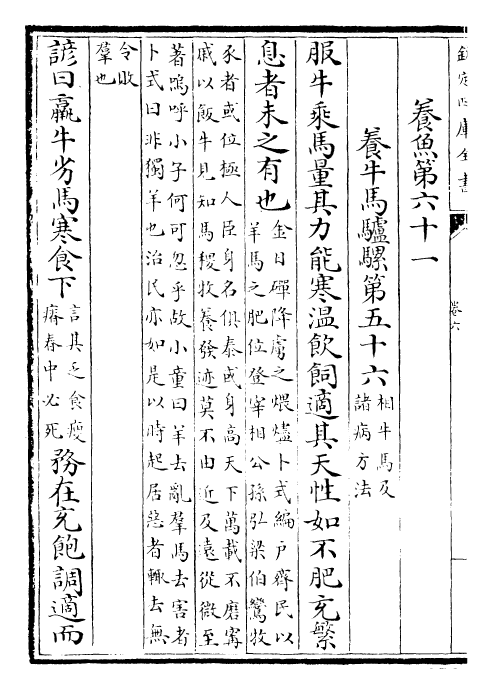 欽定四庫全書
卷六
養魚第六十一
養牛馬驢騾第五十六
相牛馬及
諸病方法
服牛乘馬量其力能寒溫飲飼適其天性如不肥充繁
息者未之有也
金日磾降虜之煨燼卜式編户齊民以
羊馬之肥位登宰相公孫弘梁伯鸞牧
豕者或位極人臣身名俱泰或身高天下萬載不磨甯
戚以飯牛見知馬稷牧養發迹莫不由近及遠從微至
著嗚呼小子何可忽乎故小童曰羊去亂羣馬去害者
卜式曰非獨羊也治民亦如是以時起居惡者輙去無
令收
羣也
諺曰羸牛劣馬寒食下
言其乏食瘦
瘠春中必死
務在充飽調適而